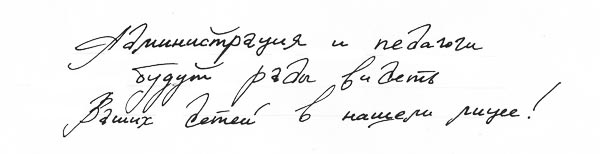 Администрация и педагоги
будут рады видеть
Ваших детей в нашем лицее!